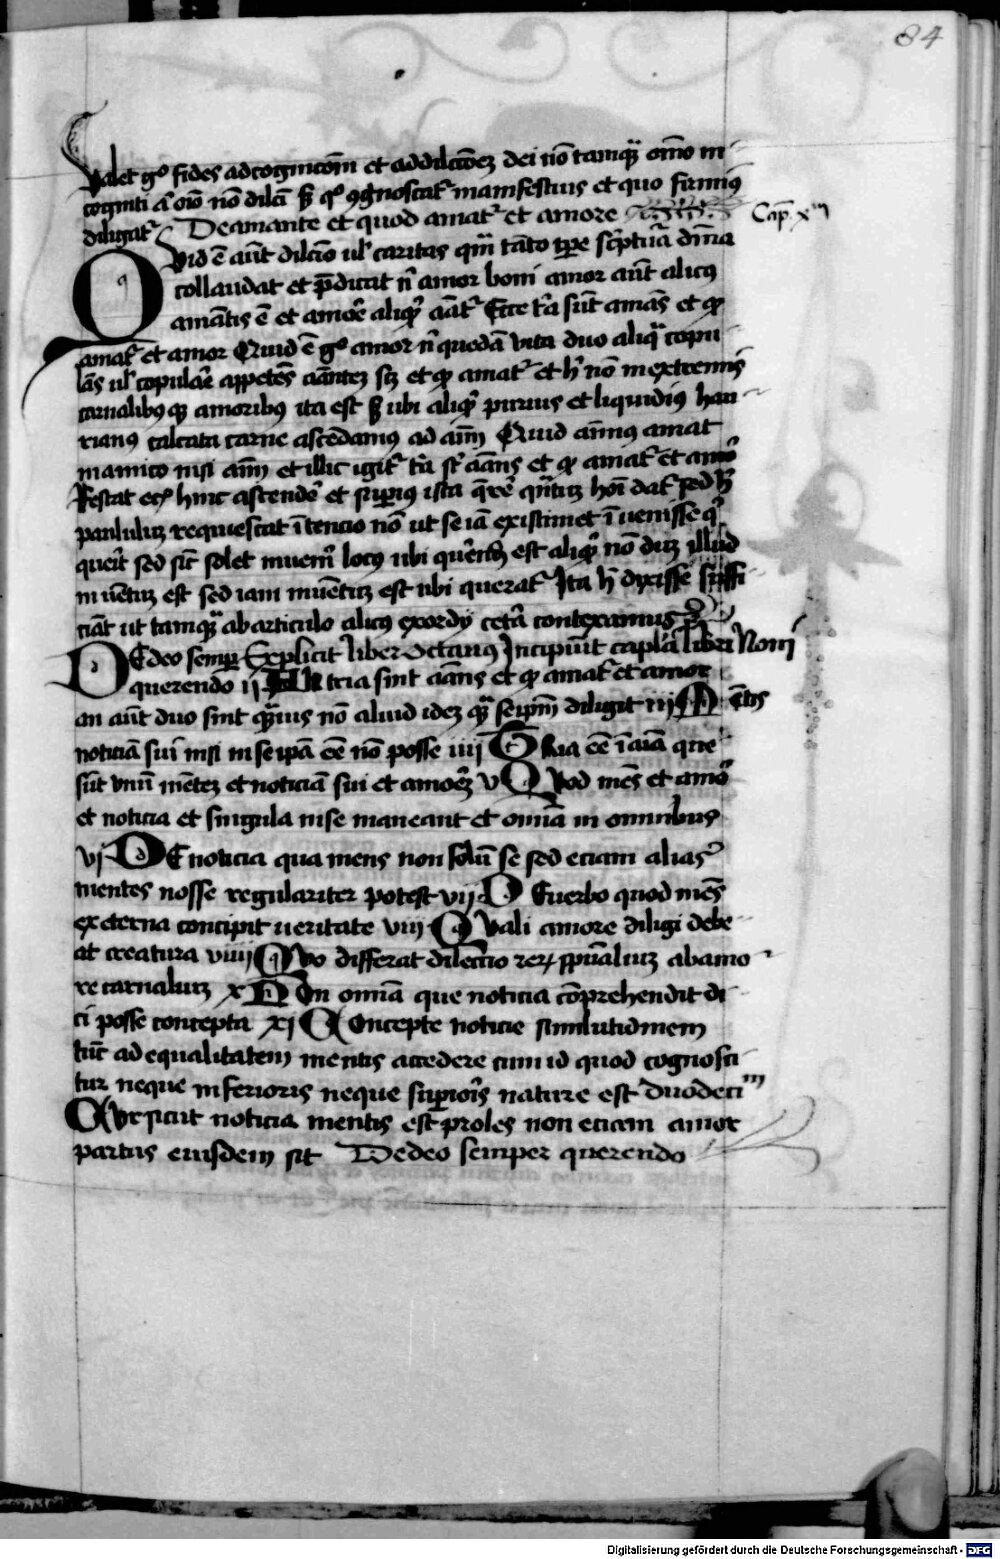 84
Valet g° fides ad cognicoēm et ad dilcōeꝫ dei nō tamqȝ om̄o in
cogniti aut om̄o nō dilcti sꝫ q° ꝯgnoscatr manifestius et quo firmius
diligatr De amante et quod amatr et amore
Cap. xm
Quid ē aūt dilcō ul' caritas qm̄ tāto tp̄e scriptura diuīa
collaudat et p̄dicat n' amor boni amor aūt alicus
amātis ē et amōe aliqd' aātr Ecce tria sūt amās et qd
amatr et amor Quid ē g° amor n' quedā vita duo aliqua copu
lās ul' copulare appetēs aāntez sꝫ et qd amatr et h' nō in extremis
carnalibusqꝫ amoribus ita est sꝫ ubi aliqd' purius et liquidius hau
riamus calcata carne ascēdamus ad aīm Quid animus amat
in amico nisi aīm et illic igitr tria st' aāns et qd amatr et amor
Restat eciā hinc ascendere et superius ista q̄rere qntuꝫ hoī datr sed h'
paululuꝫ requiescat ītencio nō ut se iā existimet īuenisse q'
querit sed sic' solet inueniri locus ubi querendū est aliqd' nō duꝫ illud
inuentuꝫ est sed iam inuētuꝫ est ubi queratr Ita h' dixisse suffi
ciāt ut tamqȝ ab articulo alicus exordy cetera contexamus
De deo semper Explicit liber Octauus Incipiūt capl'a libri Noni
querendo ij In tria sint aāns et qd amatr et amor
an aūt duo sint quāuis nō aliud ideꝫ qȝ seip̄m diligit iij Mētis
noticiā sui nisi in seipā eē nō posse iiij Tria eē ī aīa que
sūt vnū mēteꝫ et noticiā sui et amoreꝫ v Quod mēs et amor
et noticia et singula in se maneant et omīa in omnibus
vj De noticia qua mens non solū se sed eciam alias
mentes nosse regulariter potest vij De uerbo quod mēs
ex eterna concipit ueritate viij Quali amore diligi debe
at creatura viiij Quo differat dilectio reꝝ spūaliuꝫ ab amo
re carnaliuꝫ x Non omīa que noticia cōprehendit di
ci posse concepta xj Concepte noticie similitudinem
tūc ad equalitatem mentis accedere cum id quod cognosci
tur neque inferioris neque superioris nature est duodecim
Cur sicut noticia mentis est proles non eciam amor
partus eiusdem sit De deo semper querendo
Digitalisierung gefördert durch die Deutsche Forschungsgemeinschaft - DFG